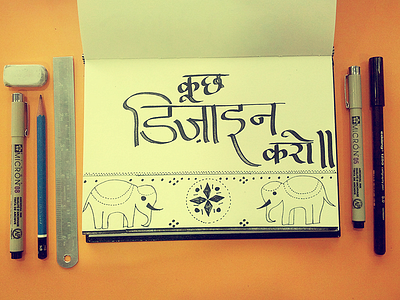 कूछ
डिज़ाइन
करो॥
MICRON 08
MICRON 05